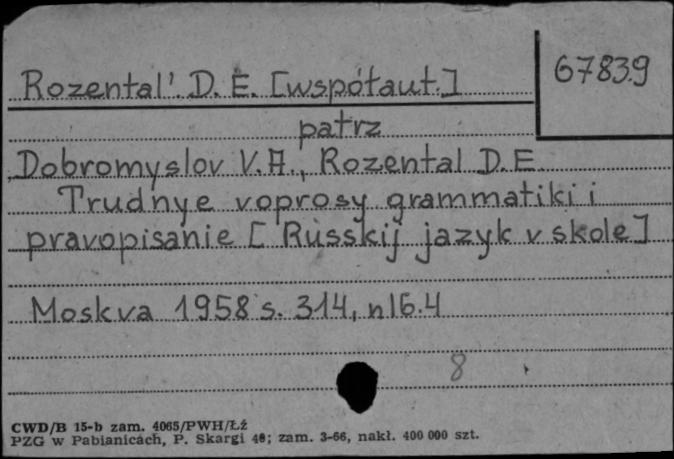 Rozental'. D. E. [współaut.]
67839
patrz
Dobromyslov V.A., Rozental D.E.
Trudnye voprosy grammatiki i
pravopisanie [Russkij jazyk v skole]
Moskva 1958 s. 314, nlb. 4
8
CWD/B 15-b zam. 4065/PWH/Łź
PZG w Pabianicach, P. Skargi 40; zam. 3-66, nakł. 400 000 szt.